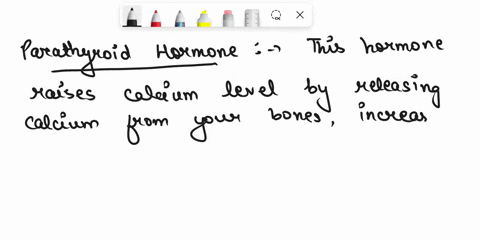 Parathyroid Hormone :→ This hormone
raises calcium level by releasing
calcium from your bones, increas